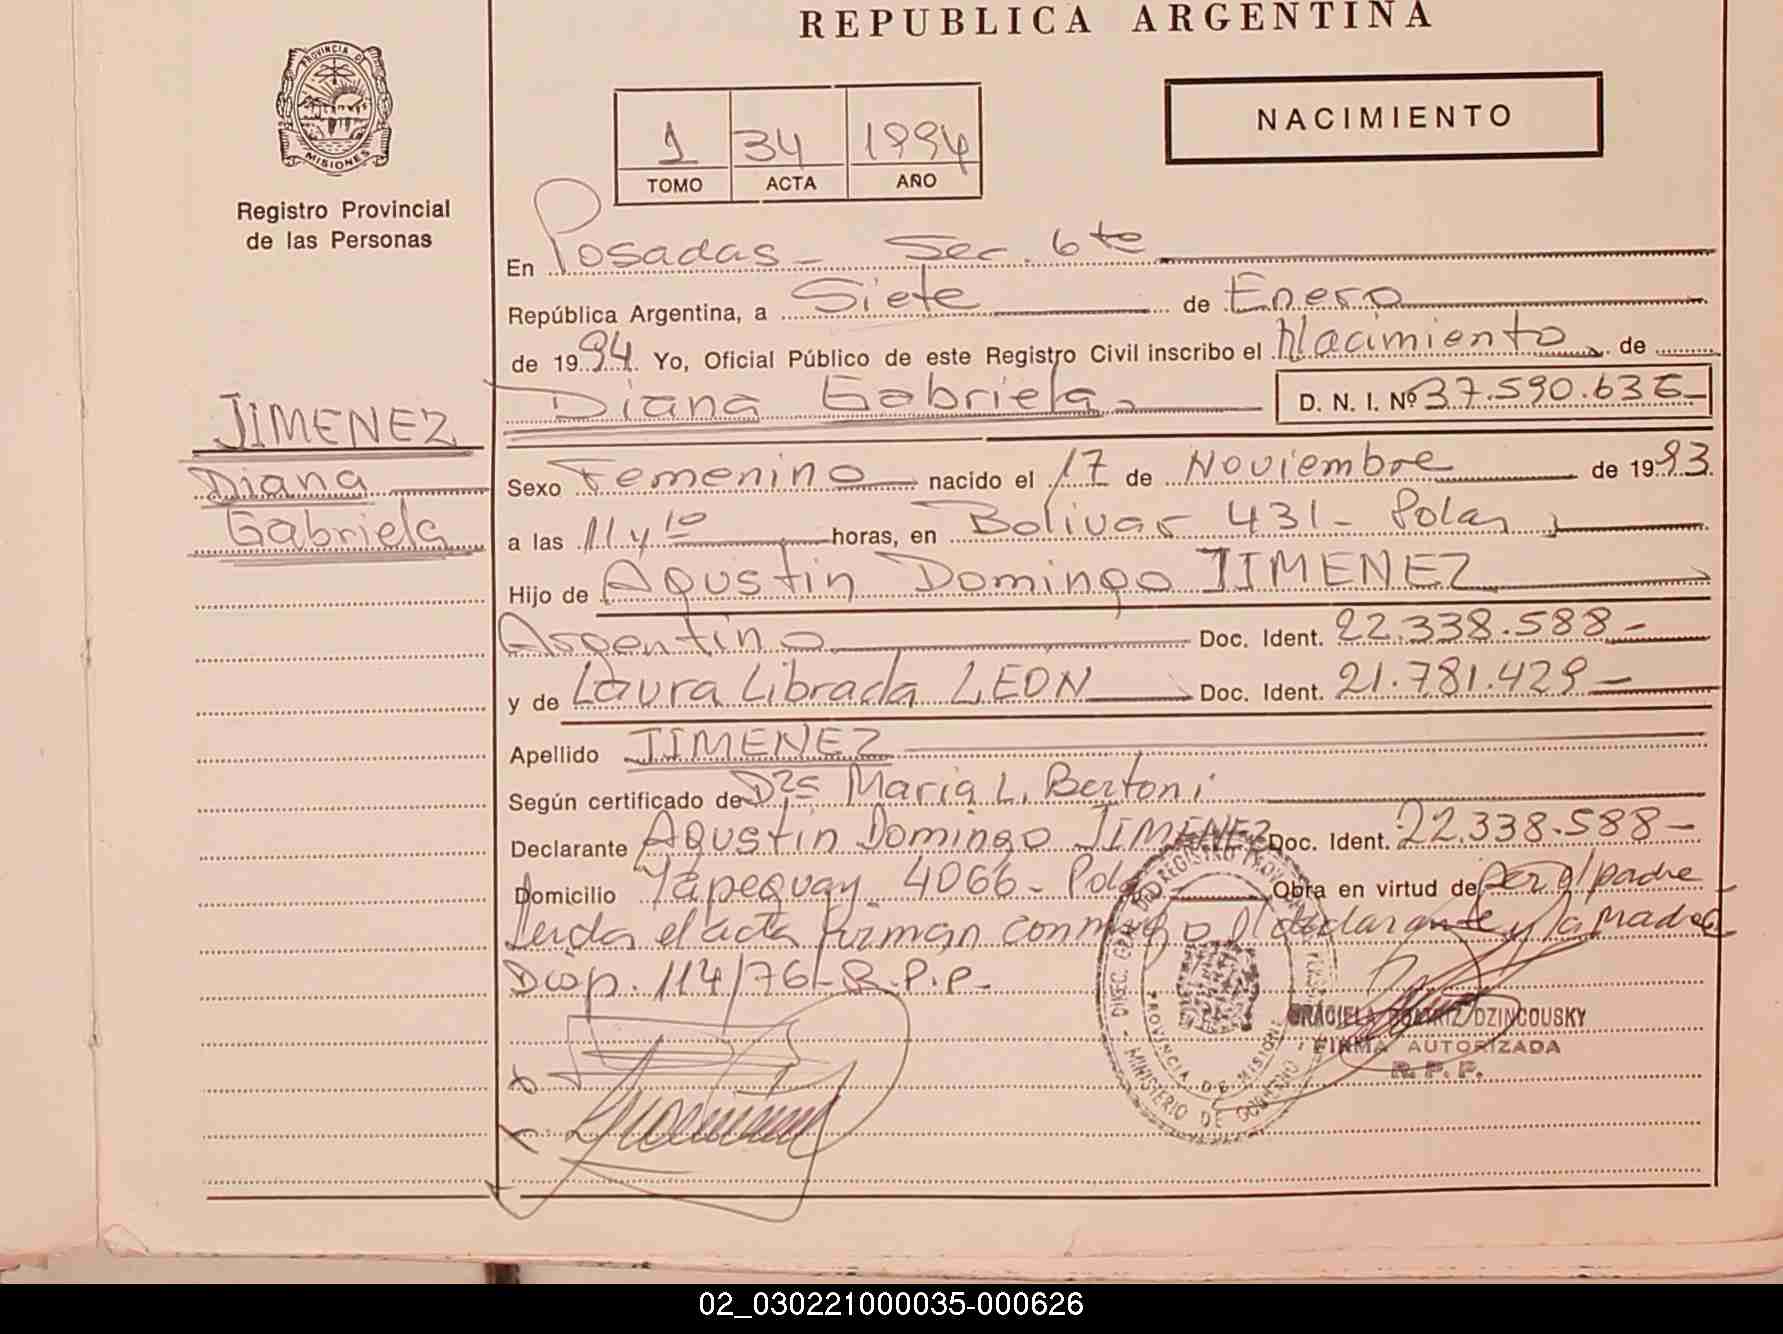 REPUBLICA ARGENTINA
PROVINCIA DE
MISIONES
Registro Provincial
de las Personas
1 34 1994
TOMO ACTA AÑO
NACIMIENTO
En Posadas - Sec. 6te
República Argentina, a Siete de Enero
de 1994 Yo, Oficial Público de este Registro Civil inscribo el Nacimiento de
Diana Gabriela D. N. I. Nº 37.590.636-
JIMENEZ
Diana
Gabriela
Sexo Femenino nacido el 17 de Noviembre de 1993.
a las 11 y 10 horas, en Bolivar 431-
Hijo de Agustin Domingo JIMENEZ
Argentino Doc. Ident. 22.338.588-
y de Laura Librada LEON Doc. Ident. 21.781.429-
Apellido JIMENEZ
Según certificado de Maria L. Bertoni
Declarante Agustin Domingo JIMENEZ Doc. Ident. 22.338.588-
Domicilio Yapeguay 4066- Obra en virtud de ser el padre
Leida el acta firman conmigo el declarante y la madre
Disp. 114/76-R.P.P-
GRACIELA BEATRIZ DZINCOUSKY
FIRMA AUTORIZADA
R. P. P.
PROVINCIA DE MISIONES
MINISTERIO DE GOBIERNO
02_030221000035-000626